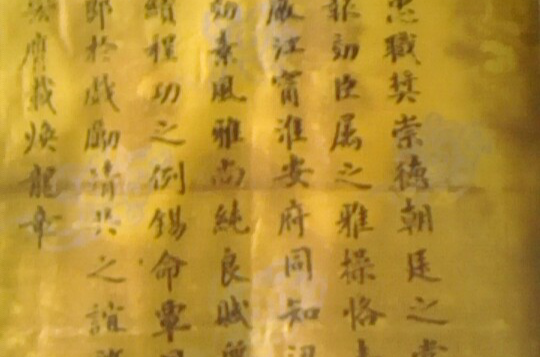 職獎崇德朝廷之
劭臣属之雅操恪
江甯淮安府同知
素風雅尚純良賦
績程功之例錫命覃
郎於戲勵靖共之誼
膺載煥龍章